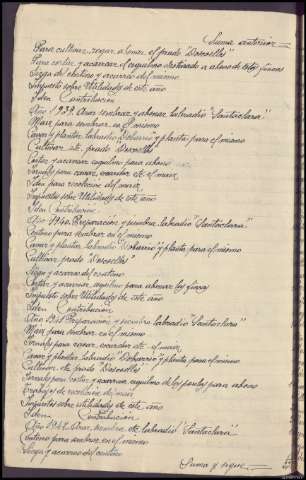 Suma anterior
Para cultivar, regar, abonar el prado "Dososello"
Para cortar y acarrear el esquilmo destinado a abono de estas fincas
Siega del centeno y acarreo del mismo
Impuesto sobre Utilidades de este año
Iden Contribución
Año 1939. Arar, sembrar, y abonar labradio "Santaclara"
Maiz para sembrar en el mismo
Cavar y plantar labradio Dobarrio y planta para el mismo
Cultivar el prado Dososello
Cortar y acarrear esquilmo para abono
Jornales para cavar, arrendar el maiz
Iden para recoleccion del maiz
Impuestos sobre Utilidades de este año
Iden Contribucion
Año 1940. Preparación y siembra labradio "Santaclara"
Centeno para sembrar en el mismo
Cavar y plantar labradio "Dobarrio" y planta para el mismo
Cultivar prado "Dososello"
Siega y acarreo del centeno
Cortar y acarrear esquilmo para abonar las fincas
Impuesto sobre Utilidades de este año
Iden Contribución
Año 1941. Preparación y siembra labradio "Santaclara"
Maiz para sembrar en el mismo
Jornales para cavar, arrendar el maiz
Cavar y plantar labradio "Dobarrio" y planta para el mismo
Cultivar el prado "Dososello"
Jornales para cortar y acarrear esquilmo para abonar
Trabajos de recolección de maiz
Impuestos sobre utilidades de este año
Iden Contribución
Año 1942. Arar, sembrar de labradio "Santaclara"
Centeno para sembrar en el mismo
Siega y acarreo del centeno
Suma y sigue